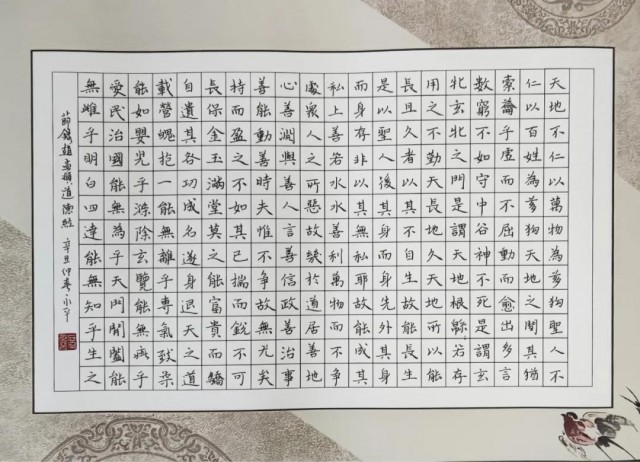 天地不仁以萬物為芻狗聖人不
仁以百姓為芻狗天地之間其猶
索籥乎虛而不屈動而愈出多言
數窮不如守中谷神不死是謂玄
牝玄牝之門是謂天地根緜若存
用之不勤天長地久天地所以能
長且久者以其不自生故能長生
是以聖人後其身而身先外其身
而身存非以其無私耶故能成其
私上善若水水善利萬物而不爭
處衆人之所惡故幾於道居善地
心善淵與善人言善信政善治事
善能動善時夫惟不爭故無尤矣
持而盈之不如其已揣而銳不可
長保金玉滿堂莫之能富貴而驕
自遺其咎功成名遂身退天之道
載營魄抱一能無離乎專氣致柔
能如嬰兒乎滌除玄覽能無疵乎
愛民治國能無為乎天門開闔能
無雌乎明白四達能無知乎生之
節錄趙孟頫道德經 辛丑仲春永平